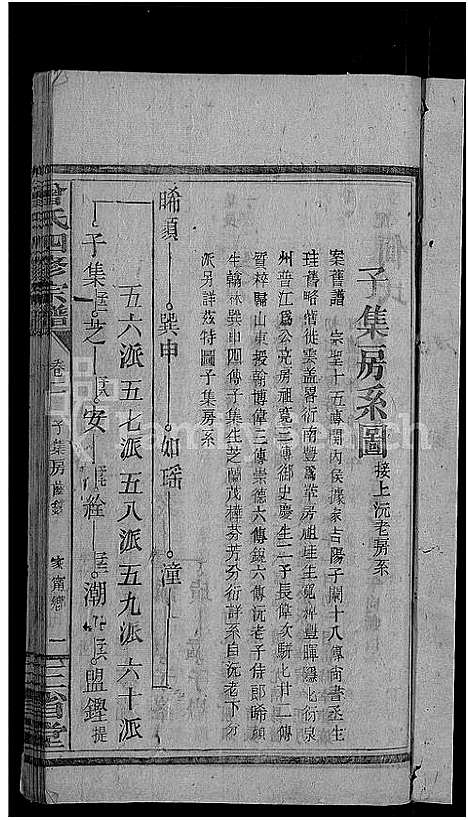 子集房系圖 接上沅老房系
案舊譜 宗聖十五傳關內侯據家吉陽子闡十八傳尚書丞生
珪舊略偕徙雲蓋舊衍南豐爲華房祖珪生寬 豐暉隱七衍泉
州晉江爲公亮房祖寬三傳御史慶生二子長偉次駢七廿二傳
質粹歸山東授翰博偉三傳崇德六傳銳六傳沅老子侍郎晞顏
生翰林巽申四傳子集生芝蘭茂樺芬芳分衍詳系自沅老下行
派另詳茲特圖子集房系
晞顏 巽申 如瑶 潼
五六派五七派五八派五九派六十派
子集 芝 安 銓 潮 盟鏗 提
曾氏四修宗譜 卷二 子集房 寧鄉 一 三省堂